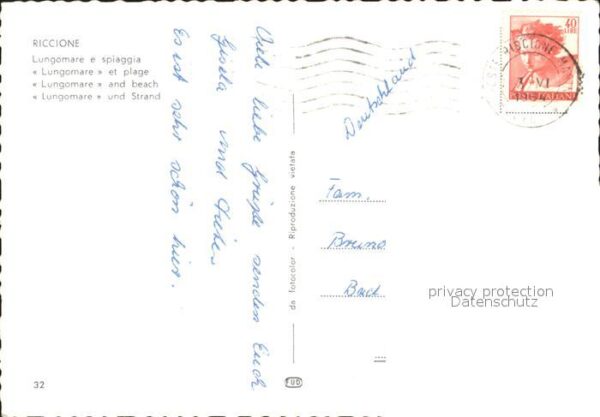 RICCIONE
Lungomare e spiaggia
« Lungomare » et plage
« Lungomare » and beach
« Lungomare » und Strand
Viele liebe Grüße senden Euch
Gisela und
Es ist sehr schön hier.
da fotocolor - Riproduzione vietata
Deutschland
Fam.
Bruno
Buck
privacy protection
Datenschutz
40
LIRE
POSTE ITALIANE
RICCIONE
32